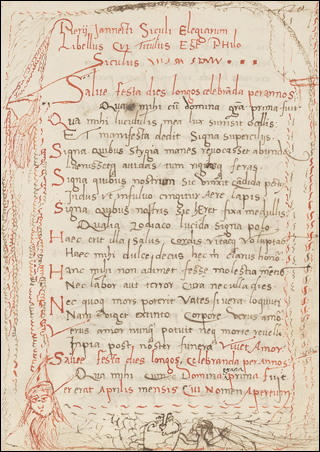 Pierij Iannecti Siculi Elegiarum
Libellus Cui Titulus Est Philo
Siculus
Salve festa dies longos celebrāda per annos
Qua mihi cū domina grā prima fuit
Qua mihi lucidulis mea lux surrisit ocellis
Et manifesta dedit signa supercilijs
Signa quibus stygia manes revocasset ab unda
feras
Signa quibus nostrum sic vinxit cādida pectus
Indus ut insuluo cingitur aere lapis
Signa quibus nostris sic heret fixa medullis
Qualia Zodiaco lucida signa polo
Haec erit illa salus, cordis vitaeq voluptas
Haec mihi dulce decus hec mi clarus honor
Hanc mihi non adimet fesse molesta
Nec labor aut terror Cura nec ulla dies
Nec quoq mors poterit Vates si vera loquuntur
Nam viget extincto Corpore verus amor
Verus amor nunq potuit neq morte revelli
Inq̄ia post nostre funera vivet Amor
Salve festa dies longos celebranda per annos
Qua mihi cum Domina grata prima fuit
erat Aprilis mensis Cui Nomen Apertum